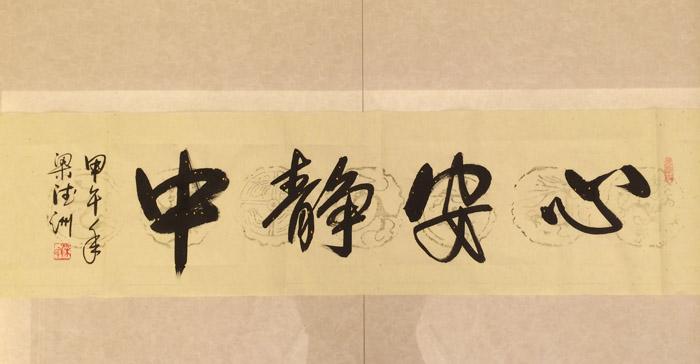 心安静中
甲午年
梁德洲